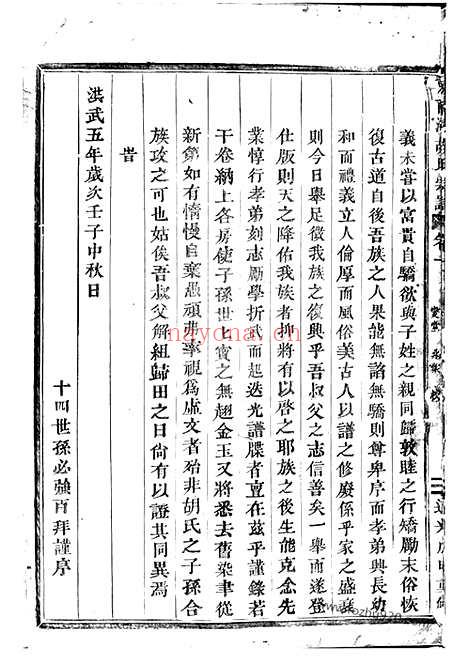 義未嘗以富貴自驕欲與子姓之親同歸敦睦之行矯勵末俗恢
復古道自後吾族之人果能無諂無驕則尊卑序而孝弟興長幼
和而禮義立人倫厚而風俗美古人以譜之修廢係乎家之盛衰
則今日舉足徵我族之復興乎吾叔父之志信善矣一舉而遂登
仕版則天之降佑我族者抑將有以啓之耶族之後生能克念先
業惇行孝弟刻志勵學折武而起迭光譜牒者亶在茲乎謹錄若
干卷納上各房使子孫世寶之無趐金玉又將悉去舊染聿從
新第如有惰慢自棄愚頑弗率視爲虛文者殆非胡氏之子孫合
族攻之可也姑俟吾叔父解組歸田之日尙有以證其同異焉
旹
洪武五年歲次壬子中秋日
十四世孫必強百拜謹序
nayona.cn